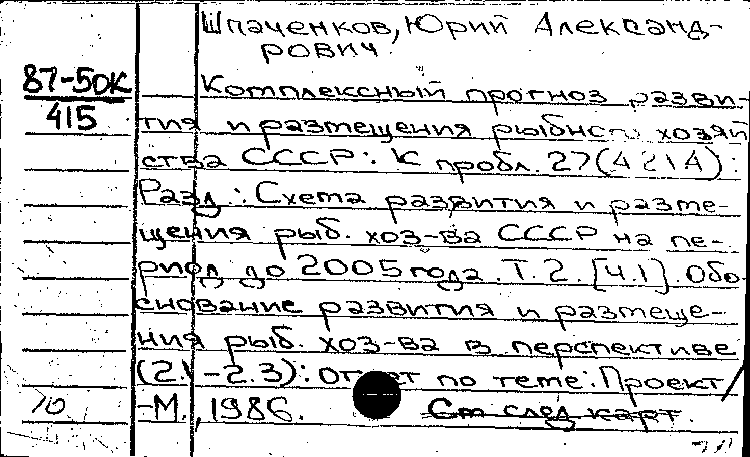 Шпаченков, Юрий Александ-
рович
87-50К
415
Комплексный прогноз разви-
тия и размещения рыбного хозяй
ства СССР: К пробл. 27(421А):
Разд.: Схема развития и разме-
щения рыб. хоз-ва СССР на пе-
риод до 2005 года. Т. 2. [Ч.1]. Обо
снование развития и размеще-
ния рыб. хоз-ва в перспективе
(2.1-2.3): отчет по теме: Проект/
10
-М., 1986.
См след карт.